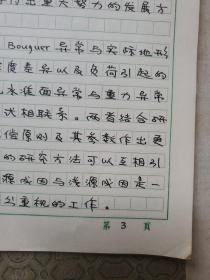 出重大努力的发展方
Bouguer异常与实际地形
度差异以及负荷引起的
水准面异常与重力异常
式相联系。两者结合研
偿原则及其参数作出更
的研究方法可以互相引
源成因与浅源成因是一
分重视的工作。
第 3 頁